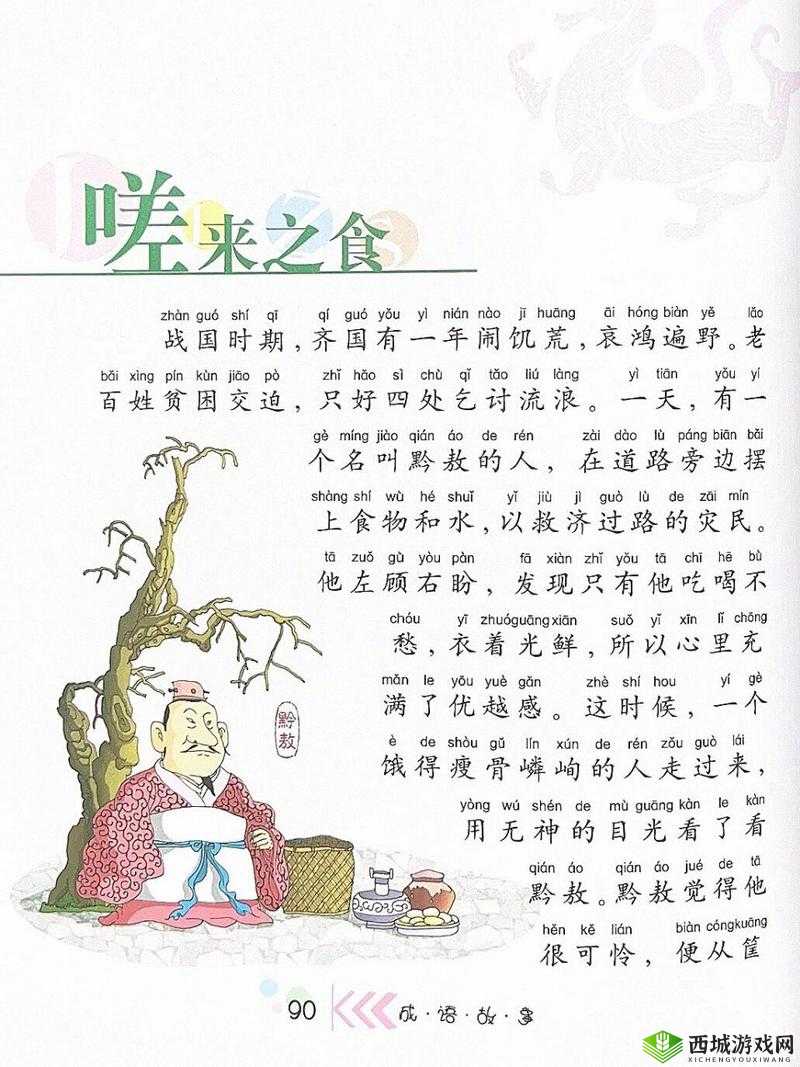 嗟来之食
zhàn guó shí qī qí guó yǒu yì nián nào jī huāng āi hóng biàn yě lǎo
战国时期，齐国有一年闹饥荒，哀鸿遍野。老
bǎi xìng pín kùn jiāo pò zhǐ hǎo sì chù qǐ tǎo liú làng yì tiān yǒu yí
百姓贫困交迫，只好四处乞讨流浪。一天，有一
gè míng jiào qián áo de rén zài dào lù páng biān bǎi
个名叫黔敖的人，在道路旁边摆
shàng shí wù hé shuǐ yǐ jiù jì guò lù de zāi mín
上食物和水，以救济过路的灾民。
tā zuǒ gù yòu pàn fā xiàn zhǐ yǒu tā chī hē bù
他左顾右盼，发现只有他吃喝不
chóu yī zhuó guāng xiān suǒ yǐ xīn lǐ chōng
愁，衣着光鲜，所以心里充
mǎn le yōu yuè gǎn zhè shí hou yí gè
满了优越感。这时候，一个
è de shòu gǔ lín xún de rén zǒu guò lái
饿得瘦骨嶙峋的人走过来，
yòng wú shén de mù guāng kàn le kàn
用无神的目光看了看
黔敖
qián áo qián áo jué de tā
黔敖。黔敖觉得他
hěn kě lián biàn cóng kuāng
很可怜，便从筐
90 成·语·故·事
西城游戏网
XICHENGYOUXIWANG